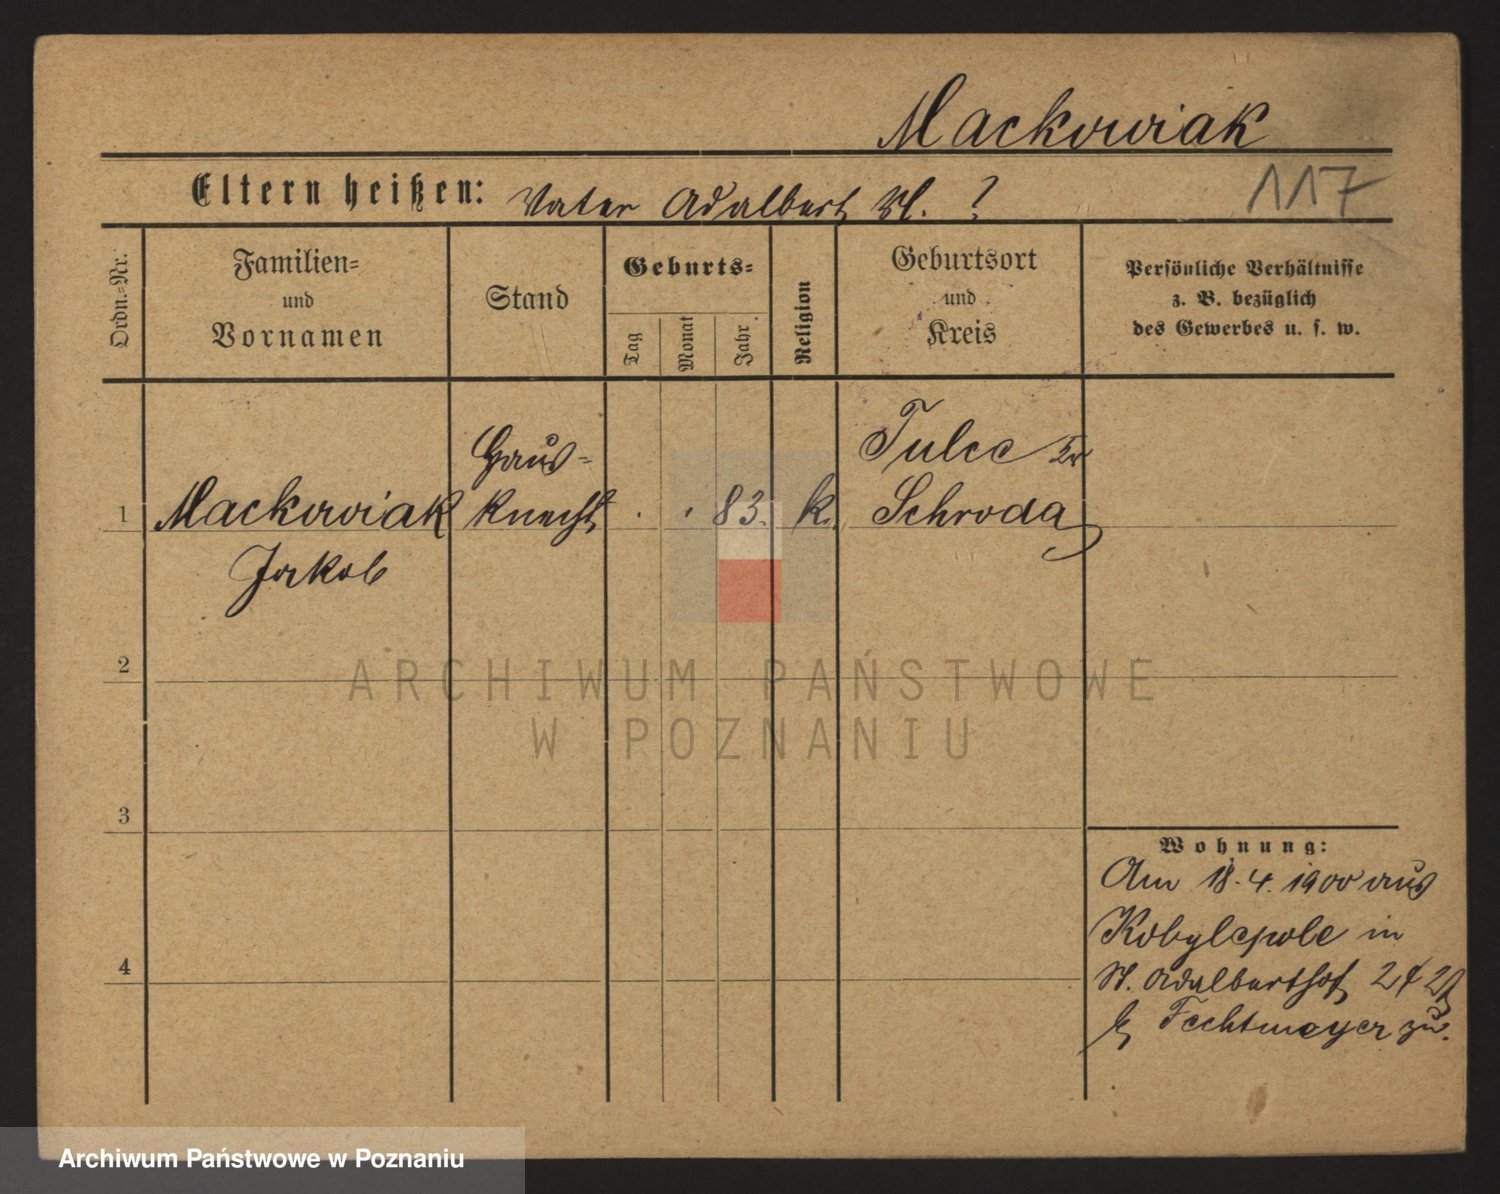 Mackowiak
117
Eltern heißen: Vater Adalbert M. ?
Ordn.-Nr.
Familien-
und
Vornamen
Stand
Geburts-
Tag
Monat
Jahr
Religion
Geburtsort
und
Kreis
Persönliche Verhältnisse
z. B. bezüglich
des Gewerbes u. s. w.
1
Mackowiak
Jakob
Haus-
knecht
. . 83.
k.
Tulce Kr
Schroda
2
3
4
Wohnung:
Am 18.4.1900 aus
Kobylepole in
St. Adalberthof
Fechtmeyer zu.
ARCHIWUM PAŃSTWOWE
W POZNANIU
Archiwum Państwowe w Poznaniu